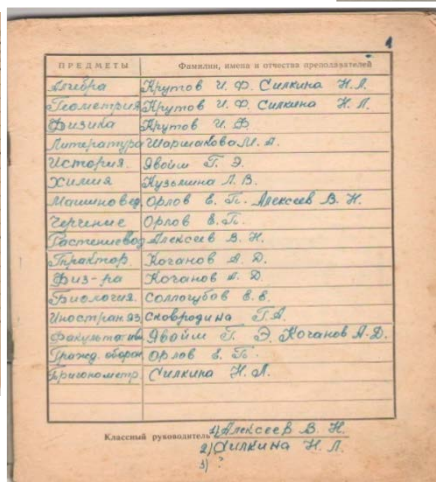 1
ПРЕДМЕТЫ Фамилии, имена и отчества преподавателей
Алгебра Крутов И. Ф. Силкина Н. Л.
Геометрия Крутов И. Ф. Силкина Н. Л.
Физика Крутов И. Ф.
Литература Шаршакова М. А.
История. Явойш Г. Э.
Химия Кузьмина Л. В.
Машиновед. Орлов Е. П. Алексеев В. Н.
Черчение Орлов Е. П.
Растениевод Алексеев В. Н.
Трактор Коганов А. Д.
Физ-ра Коганов А. Д.
Биология. Соллогубов Е. Е.
Иностран яз. Сковродина Г. А.
Факультатив Явойш Г. Э. Коганов А. Д.
Гражд. оборон Орлов Е. П.
Тригонометр. Силкина Н. Л.
Классный руководитель 1) Алексеев В. Н.
2) Силкина Н. Л.
3) ?